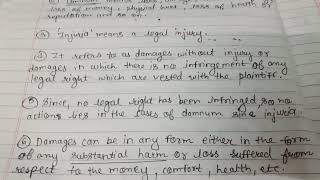 loss of money, physical hurt, loss of health, or
reputation and so on.
③ 'Injuria' means a legal injury...
④ It refers to as damages without injury or
damages in which there is no infringement of any
legal right which are vested with the plaintiff.
⑤ Since, no legal right has been infringed so no
actions lies in the cases of damnum sine injuria.
⑥ Damages can be in any form either in the form
of any substantial harm or loss suffered from
respect to the money, comfort, health, etc.